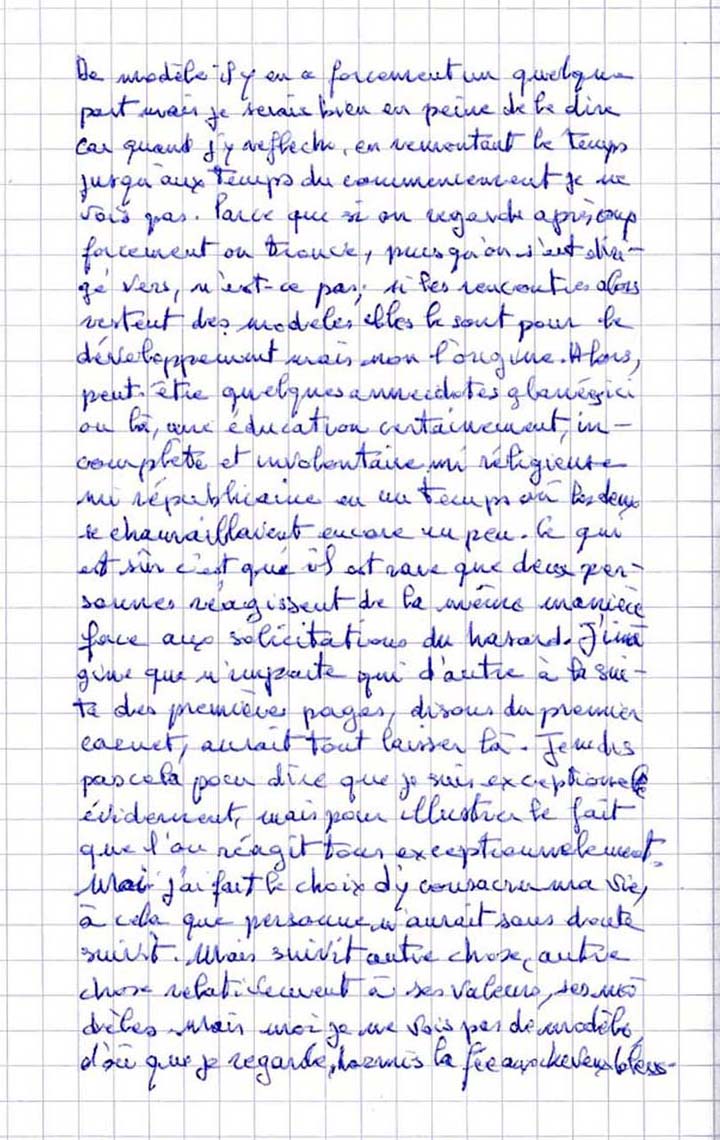 De modèle il y en a forcement un quelque
part mais je serais bien en peine de le dire
car quand j'y reflechi, en remontant le temps
jusqu'aux temps du commencement je ne
vois pas. Parce que si on regarde après coup
forcement on trouve, puisqu'on s'est diri-
gé vers, n'est-ce pas; si les rencontres alors
restent des modèles elles le sont pour le
développement mais non l'origine. Alors,
peut-être quelques annecdotes glanées ici
ou là, une éducation certainement, in-
complète et involontaire, ni réligieuse
ni républicaine en un temps où les deux
se chamaillavent encore un peu. Ce qui
est sûr c'est qué il est rare que deux per-
sonnes réagissent de la même manière
face aux solicitations du hasard. J'ima
gine que n'importe qui d'autre à la sui-
te des premières pages, disons du premier
carnet, aurait tout laisser là. Je ne dis
pas cela pour dire que je suis exceptionel
évidement, mais pour illustrer le fait
que l'on réagit tous exceptionnelement.
Moi j'ai fait le choix d'y consacrer ma vie,
à cela que personne n'aurait sans doute
suivit. Mais suivit autre chose, autre
chose relativement à ses valeurs, ses mo
dèles. Mais moi je ne vois pas de modèle,
d'où que je regarde, hormis la fée aux cheveux bleus.